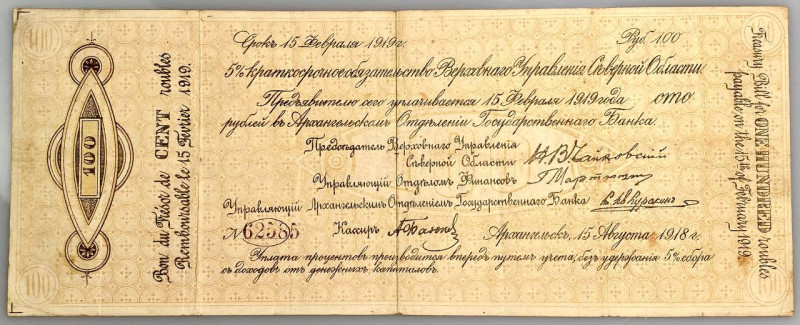 100
100
Bon du Trésor de CENT roubles
Remboursable le 15 Février 1919.
Срокъ 15 Февраля 1919 г.
Руб. 100
5% краткосрочное обязательство Верховнаго Управленія Сѣверной Области.
Предъявителю сего уплачивается 15 Февраля 1919 года сто
рублей въ Архангельскомъ Отдѣленіи Государственнаго Банка.
Предсѣдатель Верховнаго Управленія
Сѣверной Области Н.В. Чайковскій
Управляющій Отдѣломъ Финансовъ
Управляющій Архангельскимъ Отдѣленіемъ Государственнаго Банка
№ 62585
Кассиръ
Архангельскъ, 15 Августа 1918 г.
Уплата процентовъ производится впередъ путемъ учета, безъ удержанія 5% сбора
съ доходовъ отъ денежныхъ капиталовъ.
Treasury Bill for ONE HUNDRED roubles
payable on the 15th of February 1919.
100
100